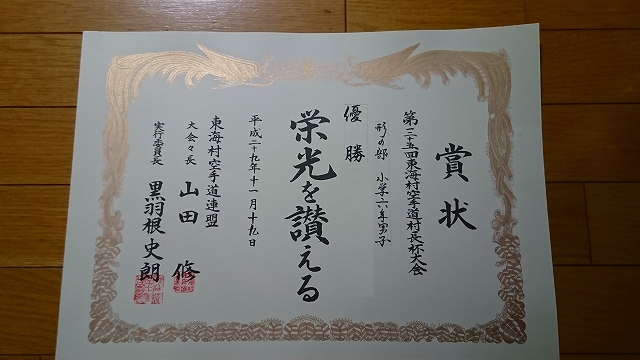 賞状
第三十五回東海村空手道村長杯大会
形の部 小学六年男子
優勝
栄光を讃える
平成二十九年十一月十九日
東海村空手道連盟
大会々長 山田 修
実行委員長 黒羽根史朗